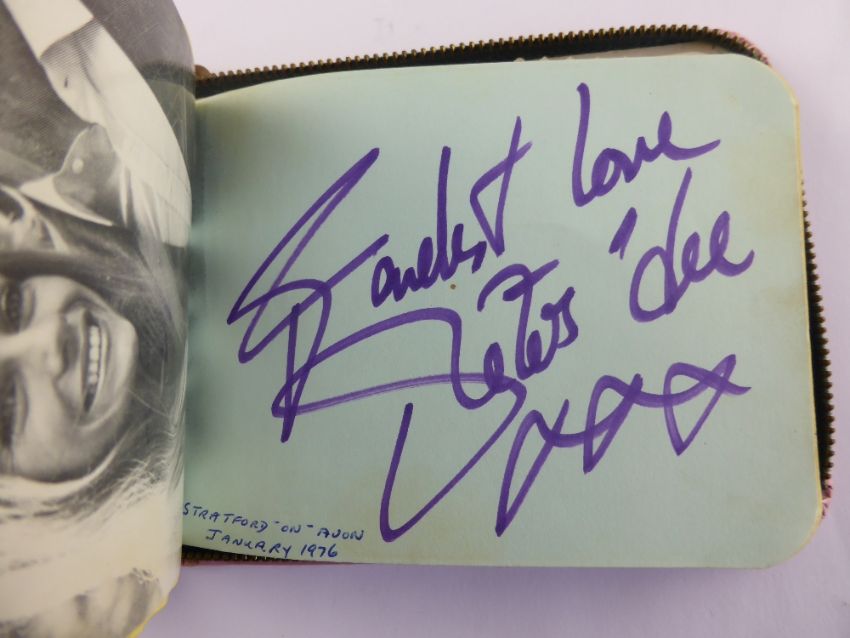 Fondest love
Peters 'Lee
xxx
STRATFORD-ON-AVON
JANUARY 1976